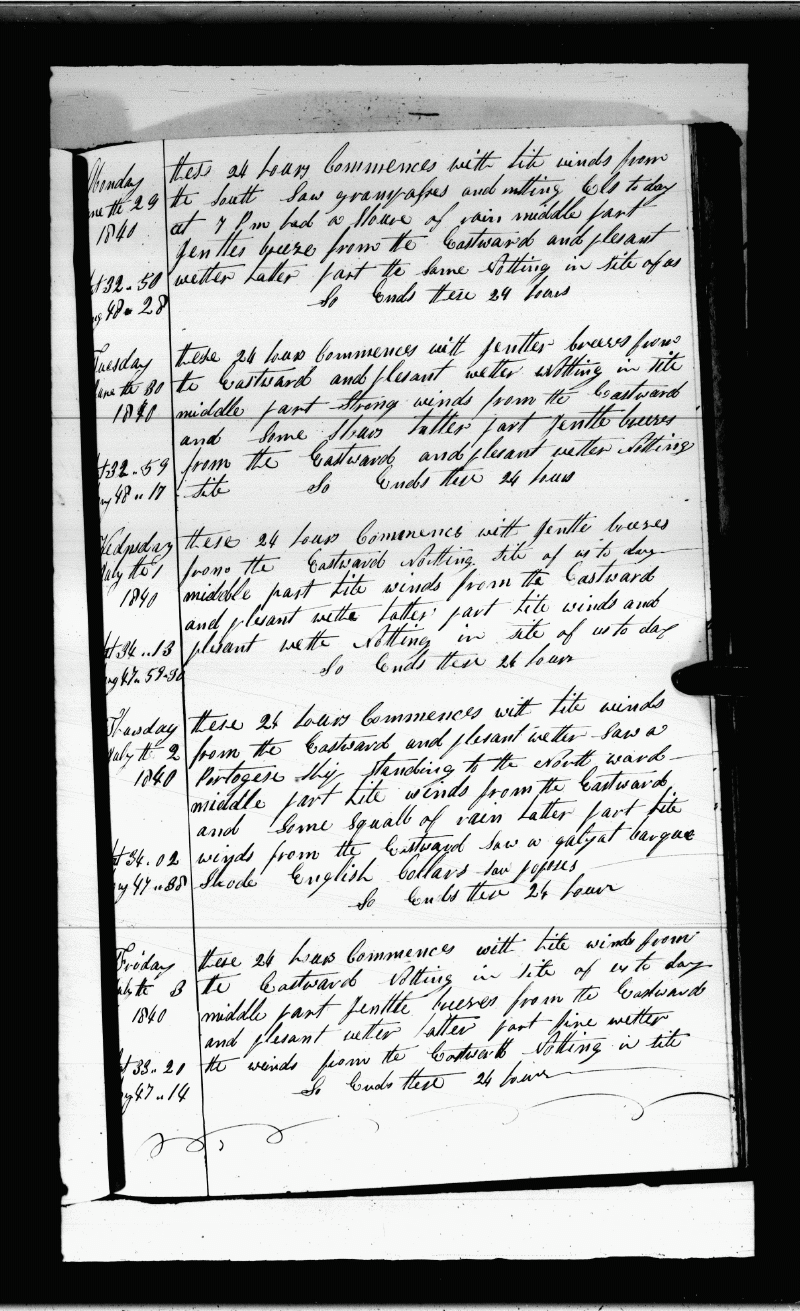 Monday
une the 29
1840
at 32 .. 50
ng 48 .. 28
these 24 hours Commences with lite winds from
the South Saw grampases and notting Els to day
at 7 P m had a Shoure of rain middle part
Jenttes breeze from the Eastward and plesant
wetter Latter part the Same Notting in site of us
So Ends these 24 hours
Tuesday
June the 30
1840
at 32 .. 59
ng 48 .. 17
these 24 hours Commences witt Jenttes breezes from
the Eastward and plesant wetter Notting in site
middle part Strong winds from the Eastward
and Some Shours latter part Jenttle breezes
from the Eastward and plesant wetter Notting
site So Ends these 24 hours
Wednsday
July the 1
1840
at 34 .. 13
ng 47 .. 59 .. 30
these 24 hours Commence witt Jentle breezes
from the Eastward Notting site of us to day
middle part Lite winds from the Eastward
and plesant wette Latter part Lite winds and
plesant wette Notting in site of us to day
So Ends these 24 hours
Thursday
July th 2
1840
at 34 .. 02
ng 47 .. 38
these 24 hours Commences witt Lite winds
from the Eastward and plesant wetter Saw a
Portogese Ship Standing to the North ward
middle part Lite winds from the Eastward
and Some Squalls of rain Latter part Lite
winds from the Eastward Saw a barque
Shode English Collars saw poposes
So Ends these 24 hours
Friday
July the 3
1840
at 33 .. 20
ng 47 .. 14
these 24 hours Commences witt Lite winds from
the Eastward Notting in site of us to day
middle part Jenttle breezes from the Eastward
and plesant wetter latter part fine wetter
the winds from the Eastward Notting in site
So Ends these 24 hours